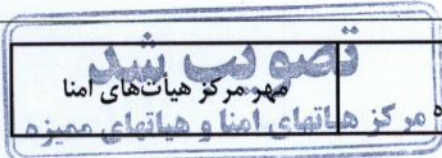 تصویب شد
مهر مرکز هیأت‌های امنا
ه
مرکز هیاتهای امنا و هیاتهای ممیزه